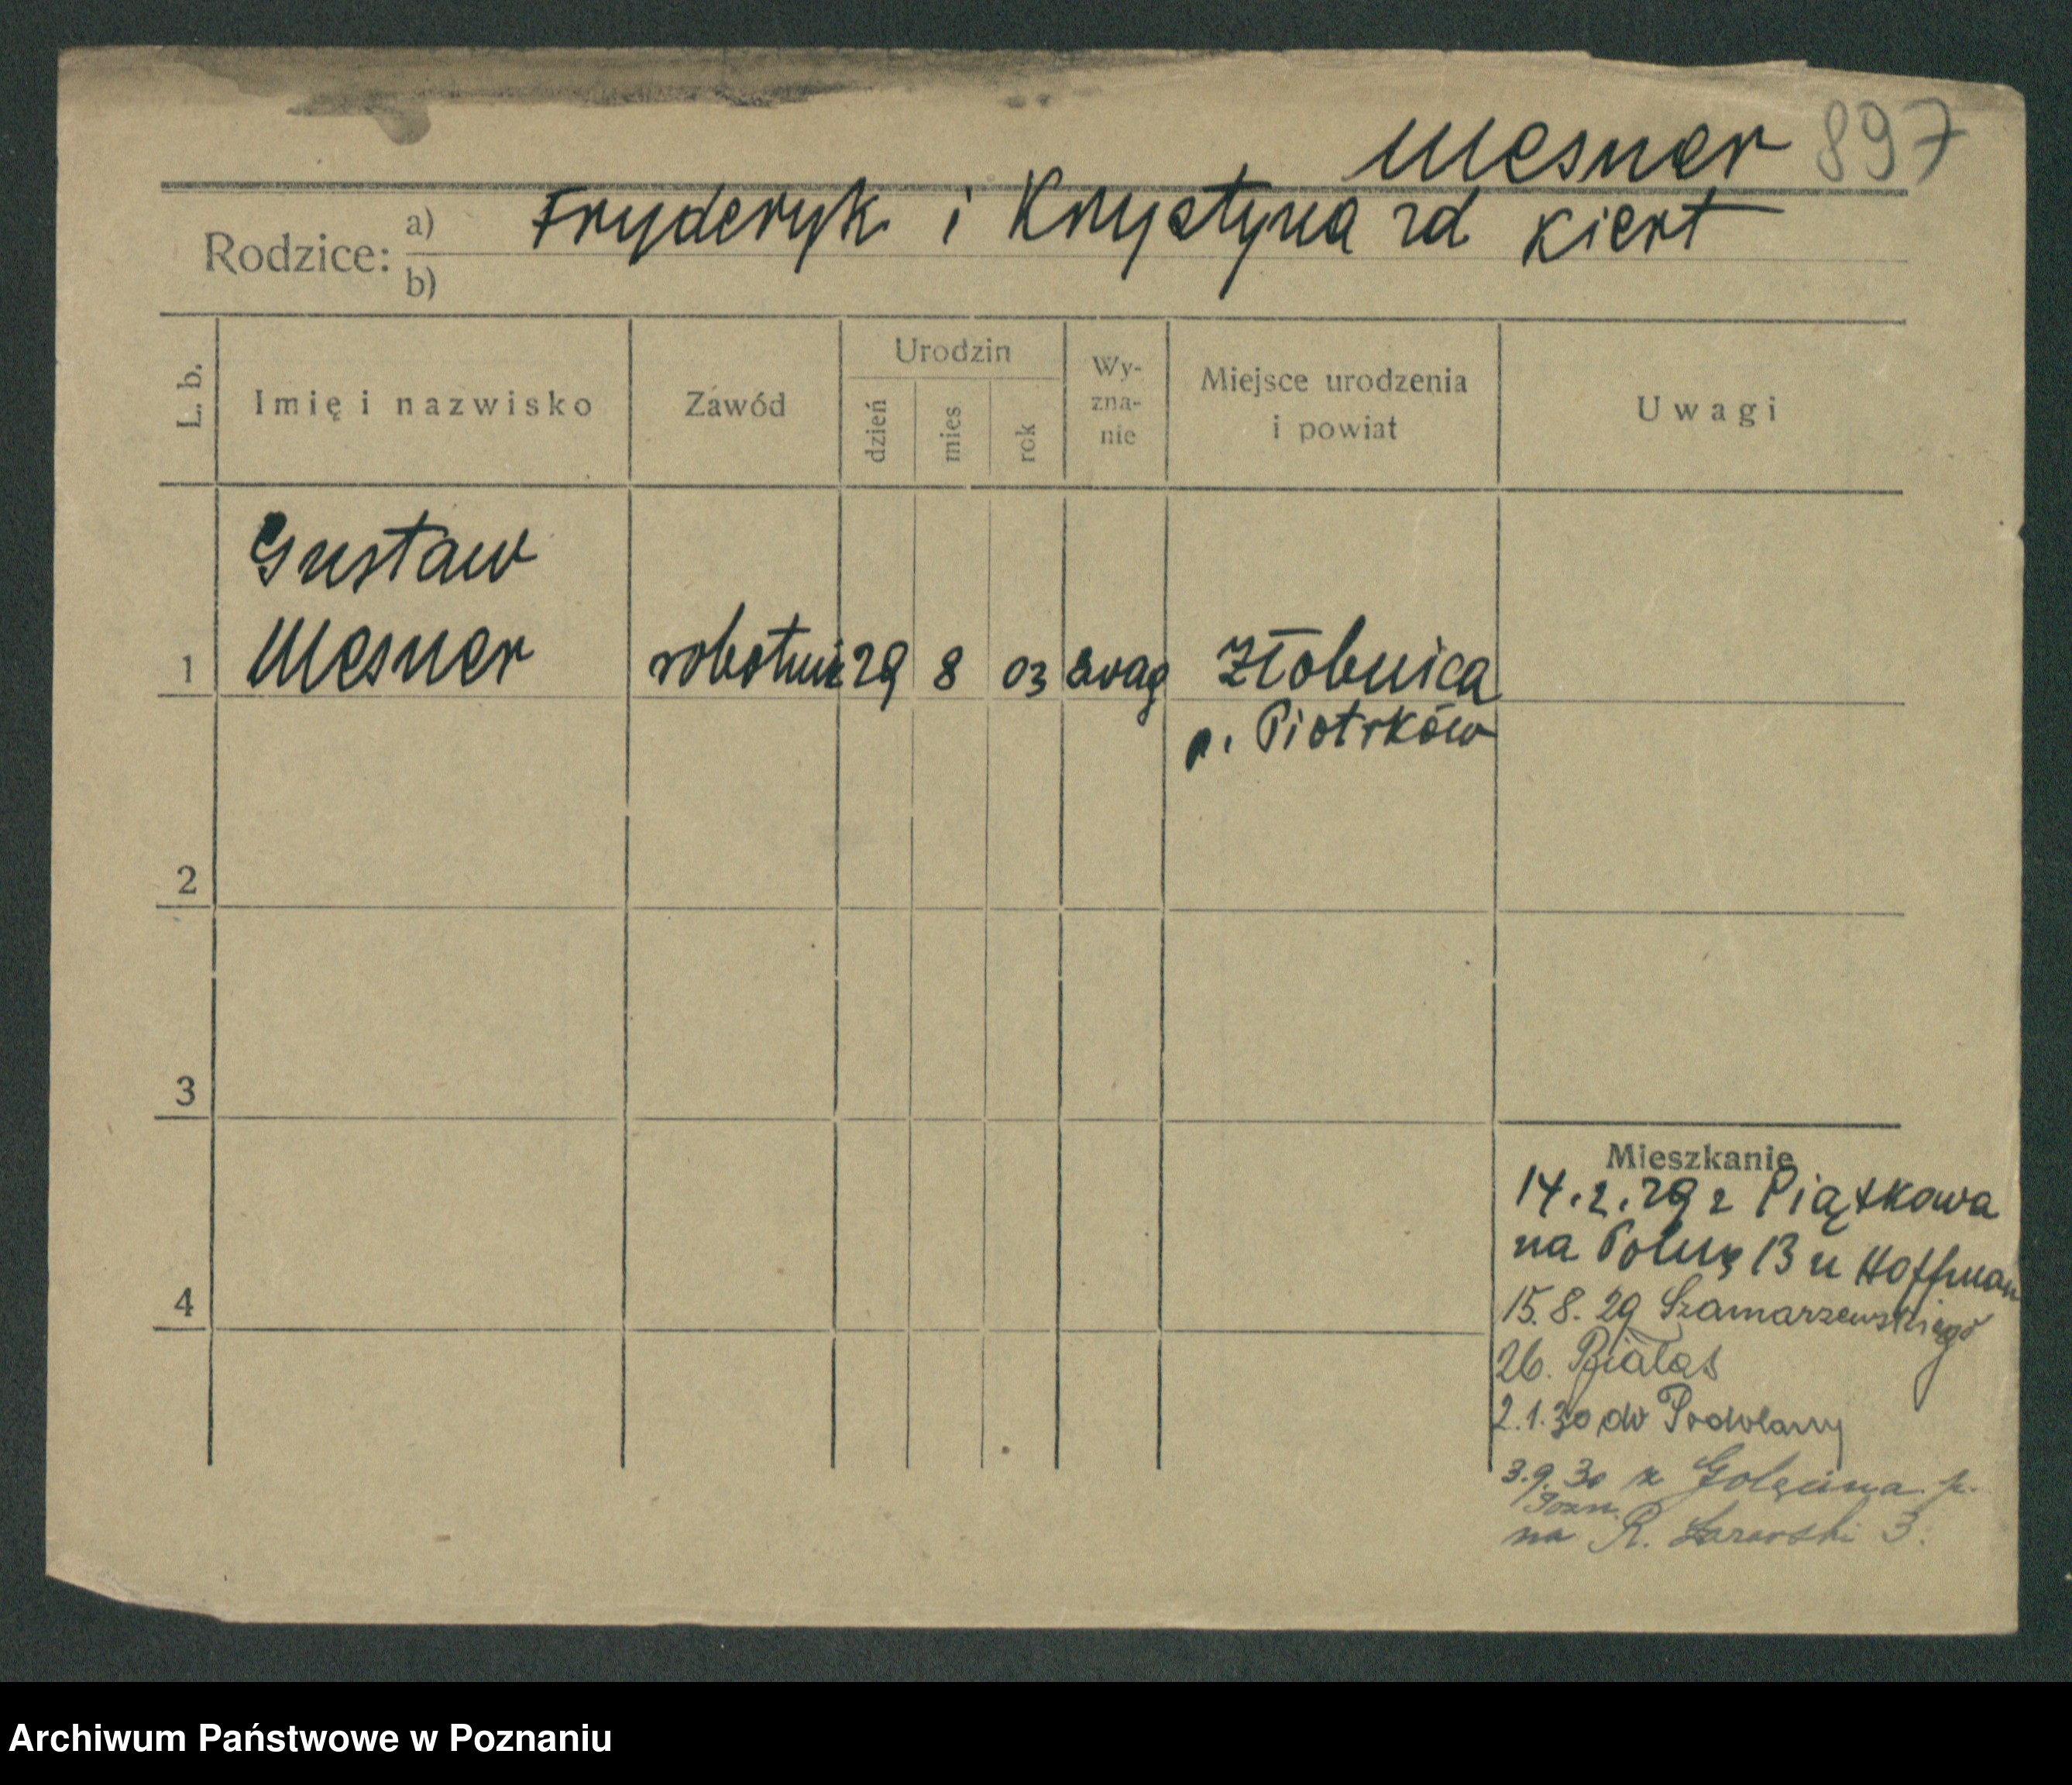 Mesner 897
Rodzice: a) Fryderyk i Krystyna zd Kiert
b)
L. b. Imię i nazwisko Zawód Urodzin dzień mies rok Wy-zna-nie Miejsce urodzenia i powiat Uwagi
Gustaw
1 Mesner robotnik 29 8 03 ewag Złobnica
p. Piotrków
2
3
Mieszkanie
14.2.29 z Piątkowa
na Polną 13 u Hoffman
4
15.8.29 Szamarzewskiego
26. Białas
2.1.30 do Podolany
3.9.30 z Golęcina p.
Pozn.
na R. 3.
Archiwum Państwowe w Poznaniu